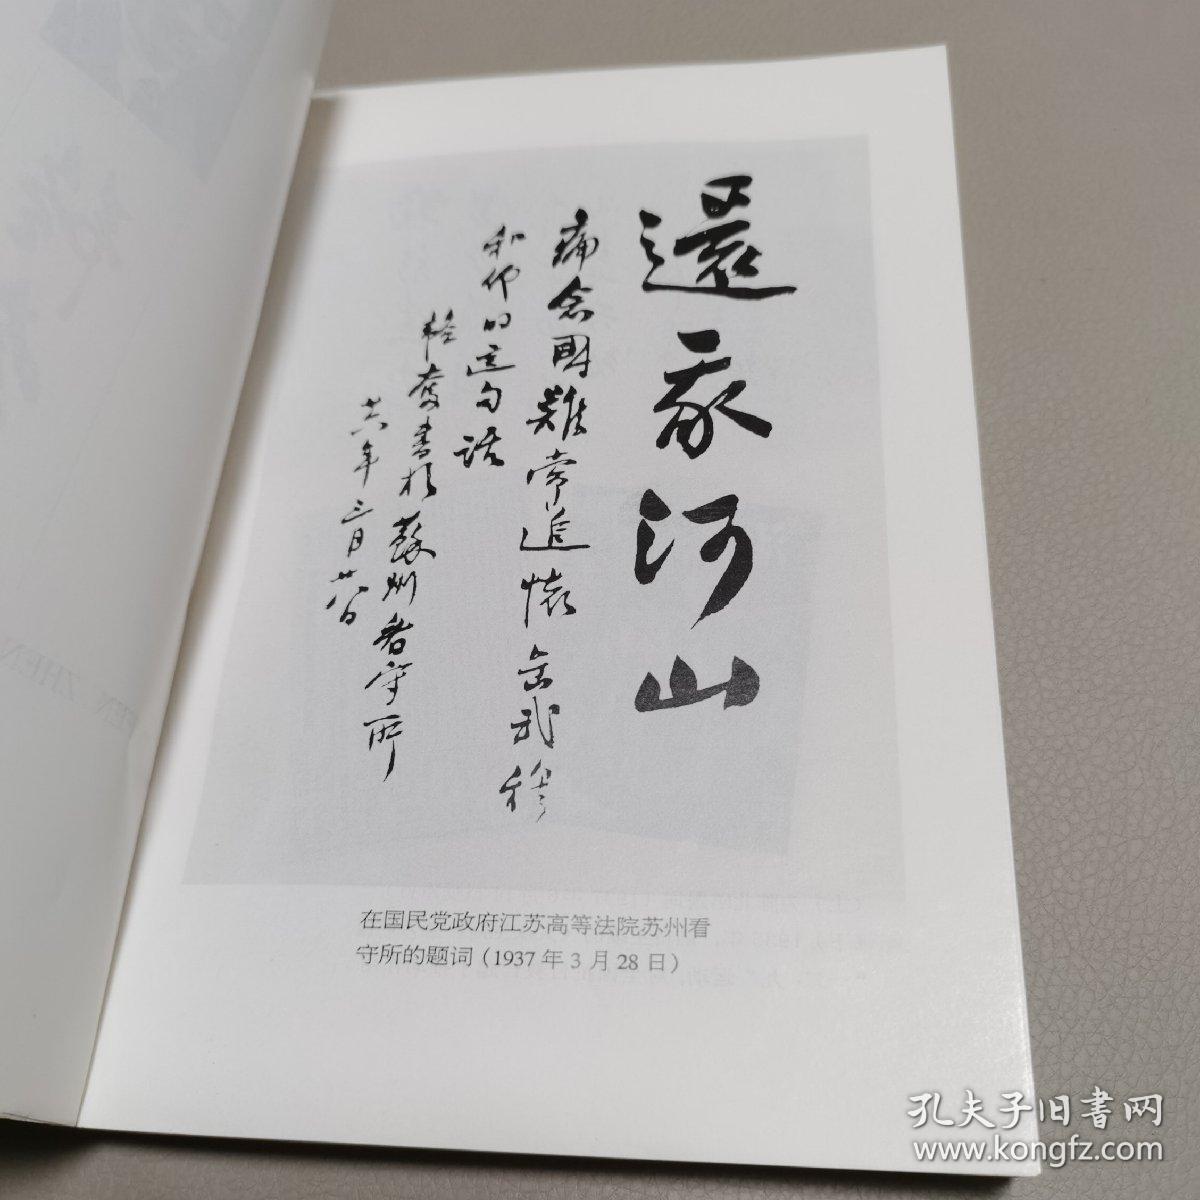 還我河山
痛念國難常追懷岳武穆
和仰的這句話
韜奮書於蘇州看守所
廿六年三月廿八日
在国民党政府江苏高等法院苏州看
守所的题词（1937 年 3 月 28 日）
孔夫子旧书网
www.kongfz.com